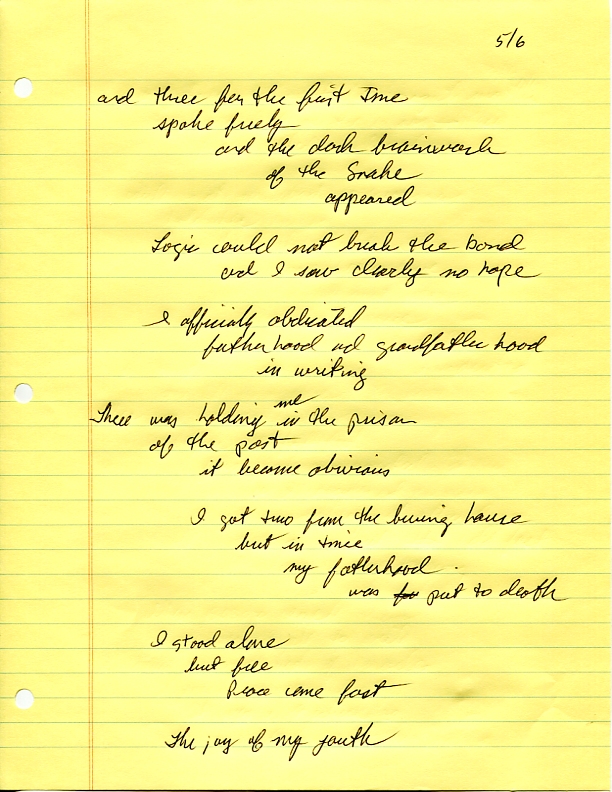 5/6
and three for the first time
spoke freely
and the dark brainwork
of the Snake
appeared
Logic could not break the bond
and I saw clearly no hope
I officially abdicated
fatherhood and grandfatherhood
in writing
me
Three was holding in the prison
of the past
it became obivious
I got two from the burning house
but in time
my fatherhood
was put to death
I stood alone
but free
Peace came fast
The joy of my youth